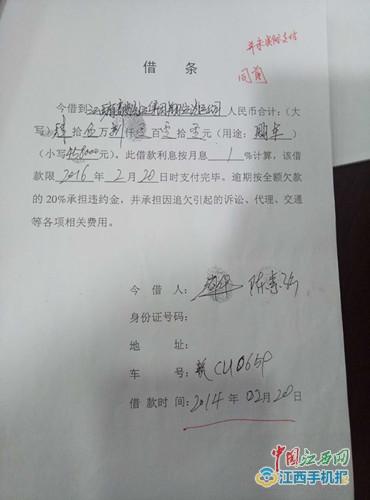 并未实际支付
同前
借 条
今借到 人民币合计:(大
写) 拾伍万捌仟零百零拾零元(用途:购车)
(小写458000元)。此借款利息按月息1%计算,该借
款限2016年2月20日时支付完毕。逾期按全额欠款
的20%承担违约金,并承担因追欠引起的诉讼、代理、交通
等各项相关费用。
今 借 人:
身份证号码:
地 址:
车 号:赣CU0659
借 款 时 间:2014年02月20日
中国江西网
江西手机报